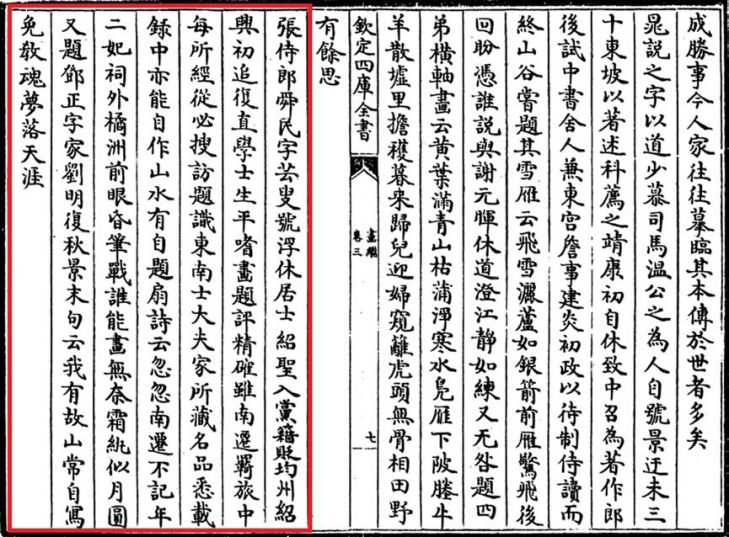 成勝事今人家往往摹臨其本傳於世者多矣
晁説之字以道少慕司馬温公之為人自號景迂未三
十東坡以著述科薦之靖康初自休致中召為著作郎
後試中書舍人兼東宮詹事建炎初政以待制侍讀而
終山谷嘗題其雪雁云飛雪灑蘆如銀箭前雁驚飛後
回盼憑誰説與謝元暉休道澄江静如練又无咎題四
弟橫軸畫云黄葉滿青山枯蒲浄寒水鳬雁下陂塍牛
羊散墟里擔穫暮來歸兒迎婦窺籬虎頭無骨相田野
欽定四庫全書
畫繼
卷三
七
有餘思
張侍郎舜民字芸叟號浮休居士紹聖入黨籍貶均州紹
興初追復直學士生平嗜畫題評精確雖南遷羇旅中
每所經從必搜訪題識東南士大夫家所藏名品悉載
録中亦能自作山水有自題扇詩云忽忽南遷不記年
二妃祠外橘洲前眼昏筆戰誰能畫無奈霜紈似月圓
又題鄧正字家劉明復秋景末句云我有故山常自寫
免教魂夢落天涯